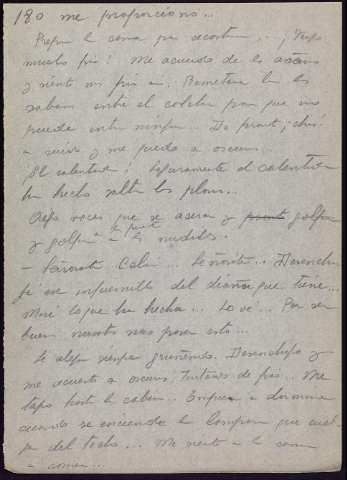 180 me proporciono..
Preparo la cama para acostarme... ¡Tengo
mucho frío! Me acuerdo de los
y siento más frío aún. Remeteré bien las
sábanas entre el colchón para que no
pueda entrar ninguno.. De pronto, ¡chas!
un ruido y me quedo a oscuras.
¡El calentador! Seguramente el calentador
ha hecho saltar los plomos...
Oigo voces que se acercan y golpes
y golpes en la puerta a la
- Señorita Celia... Señorita.. Desenchufe
ese infiernillo del diantre que tiene...
Mire lo que ha hecho... Lo ve... Por ser
buena nos pasa esto...
Se aleja gruñendo. Desenchufo y
me acuesto a oscuras. Tiritando de frío... Me
tapo hasta la cabeza.. Empiezo a dormirme
cuando se enciende la lámpara que cuelga
del techo... Me siento en la cama
a comer...